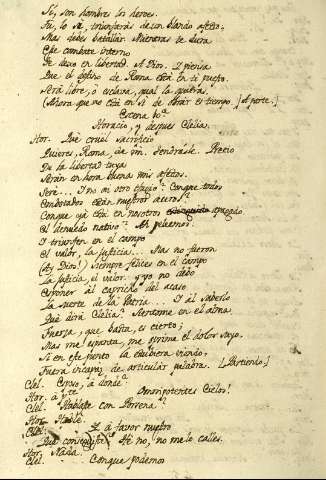 Si, son hombres los heroes.
Tu, lo sé, triunfarás de un blando afecto;
Mas debes batallar. Mientras te dexa
Ese combate interno
Te dexo en libertad. A Dios. I piensa
Que el destino de Roma está en tu pecho.
Será libre, ó esclava, qual la quieras.
(Ahora que no está en sí de obrar es tiempo.) [A parte.]
Escena 10.ª
Horacio, y despues Clelia.
Hor. Qué cruel sacrificio
Quieres, Roma, de mi. Tendrásle. Precio
De la libertad tuya
Serán en hora buena mis afectos.
Seré... I no ai otro Con que todos
Embotados están nuestros aceros?
Con que yá está en nosotros apagado
El denuedo nativo? Ah peleemos.
I triunfen en el campo
El valor, la justicia... Mas no fueron
(Ay Dios!) siempre felices en el campo
La justicia, el valor. I yo no debo
Exponer al capricho del acaso
La suerte de la Patria... I al saberlo
Qué dirá Clelia? Sientome en el alma
Fuerza, que basta, es cierto;
Mas me espanta, me oprime el dolor suyo.
Si en este punto la estubiera viendo,
Fuera incapaz de articular palabra. [Partiendo.]
Clel. Esposo, á donde?
Hor. á y te Omnipotentes Cielos!
Clel. Hablaste con Porsena?
Hor. Hablé.
Clel. I á favor nuestro
Qué conseguiste? Ah no, no me lo calles.
Hor. Nada.
Clel. Con que podemos